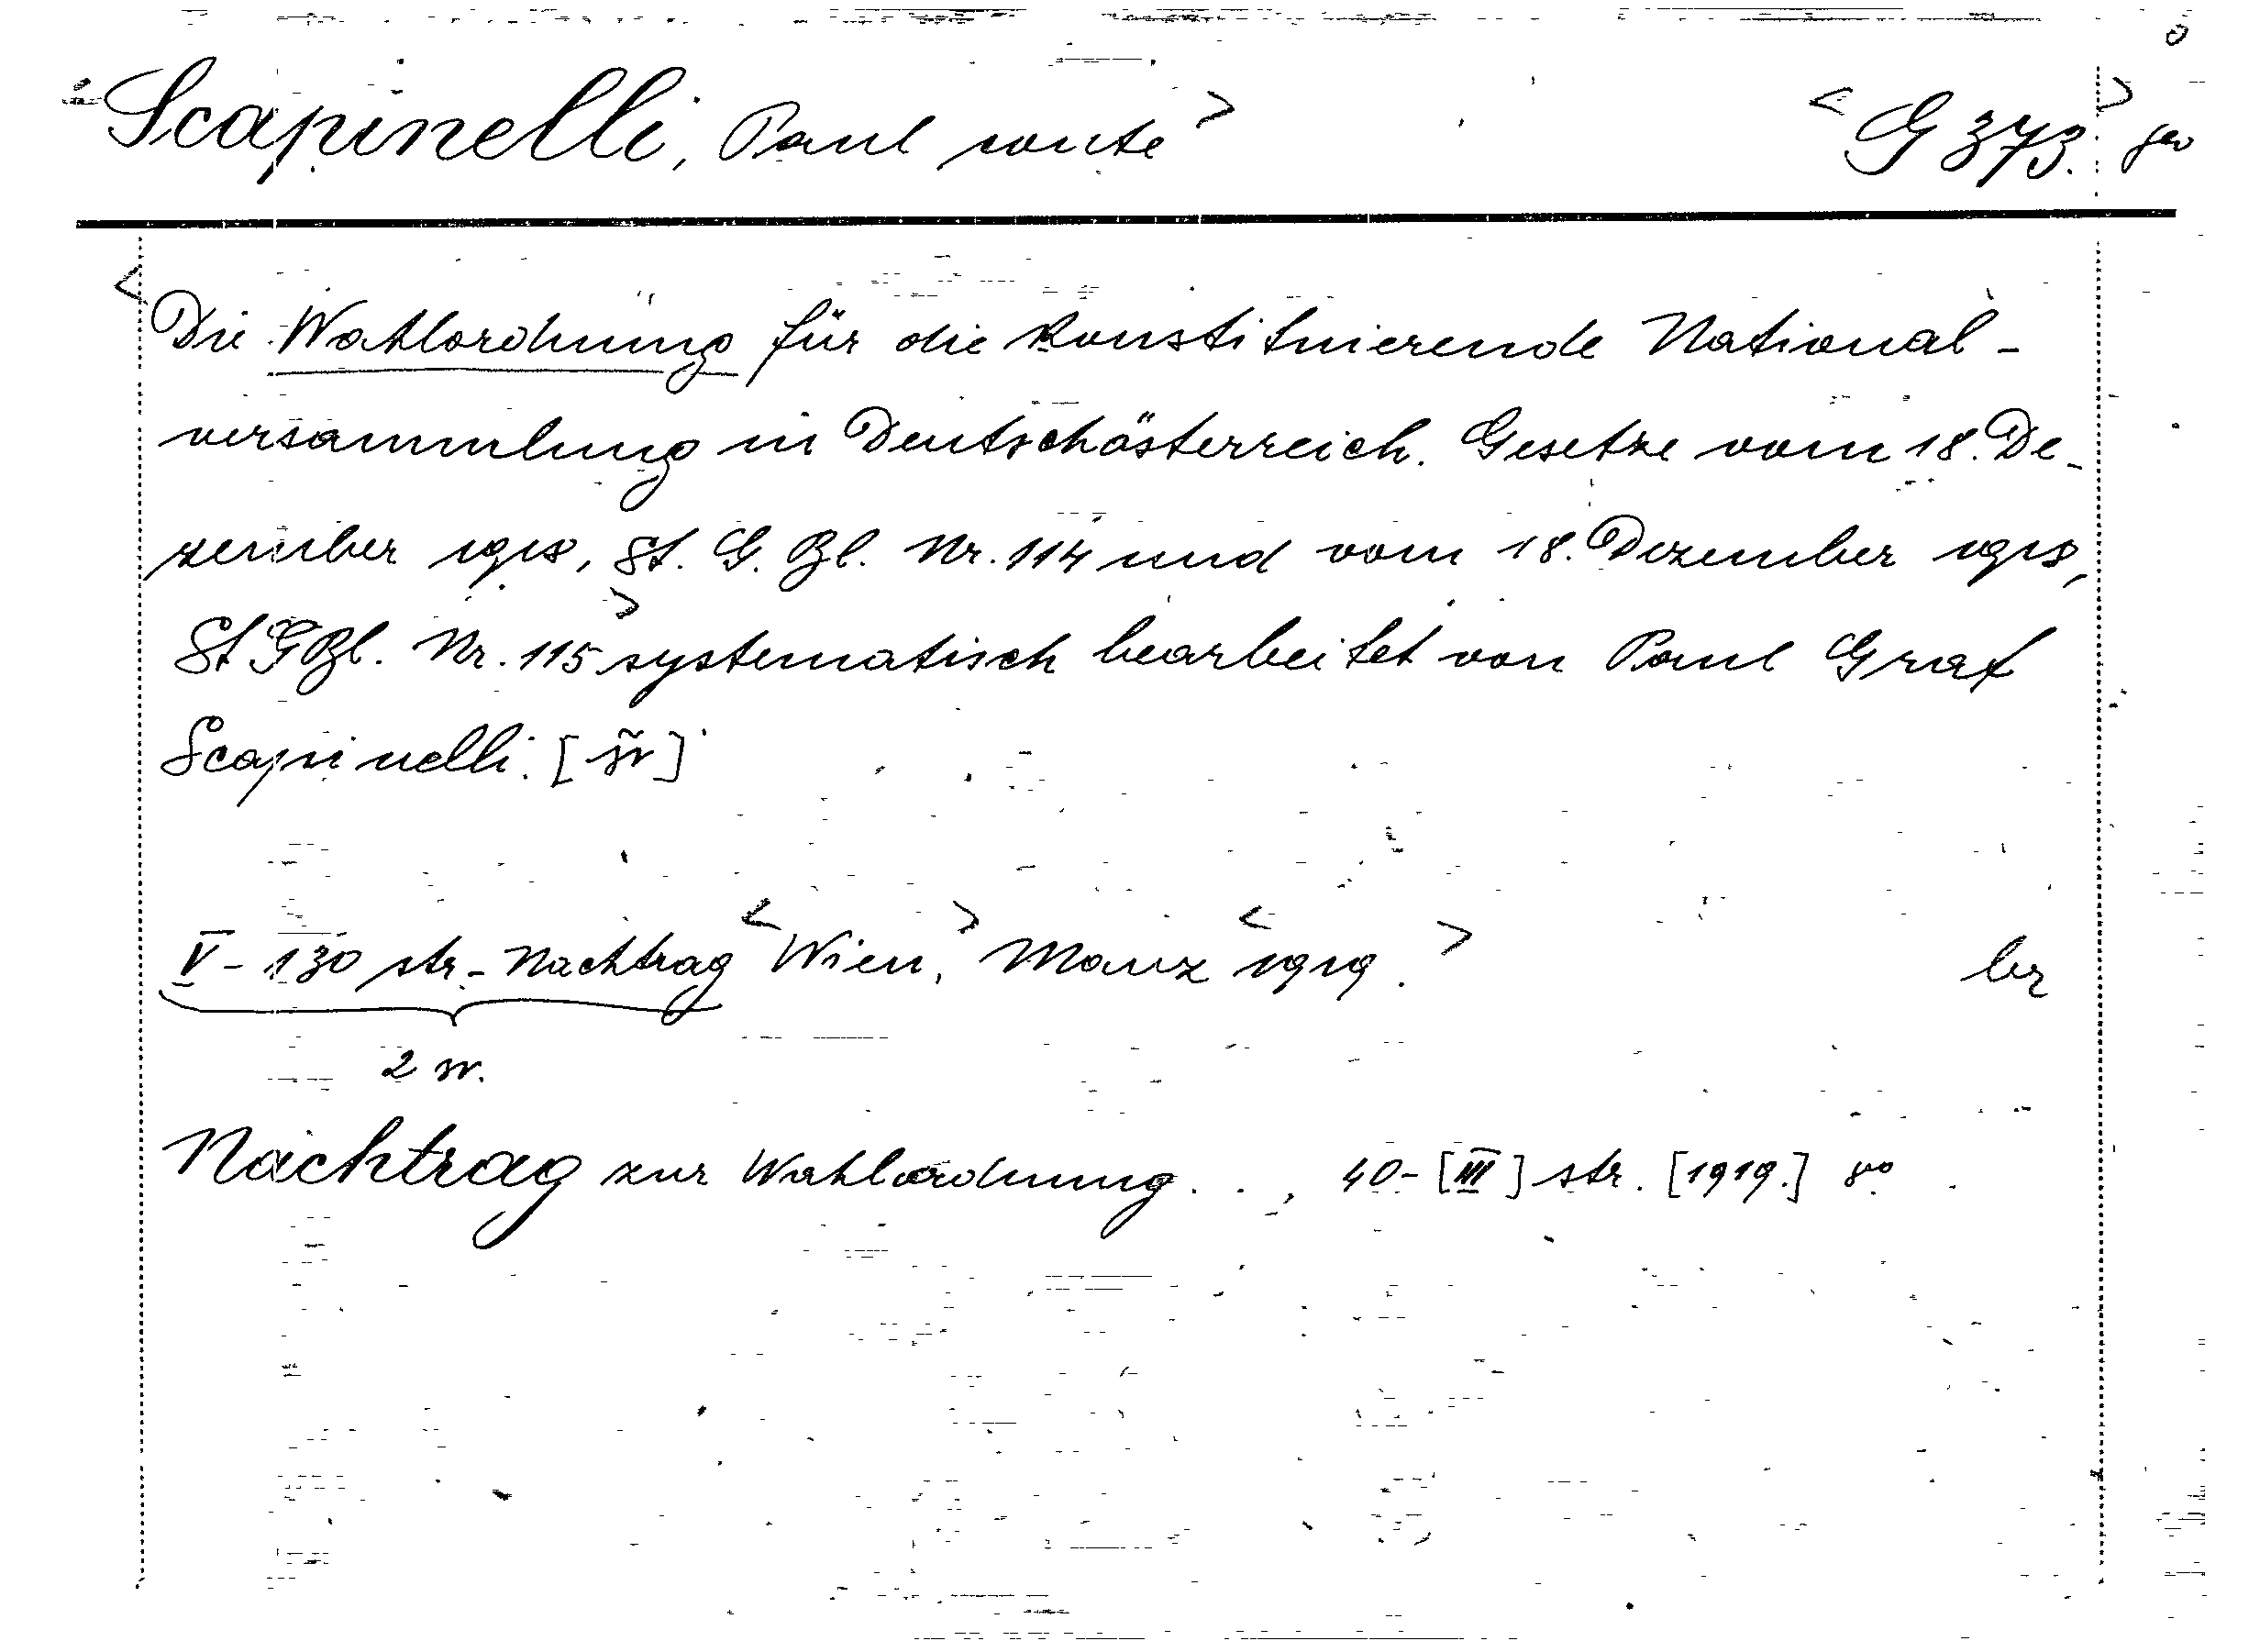 Scapinelli, Paul conte G 373.
Die Wahlordnung für die konstituierende National-
versammlung in Deutschösterreich. Gesetze vom 18. De-
zember 1918, St. G. Bl. Nr. 114 und vom 18. Dezember 1918,
St GBl. Nr. 115 systematisch bearbeitet von Paul Graf
Scapinelli.
V-130 str. - Nachtrag Wien, Manz 1919. br
2 sv.
Nachtrag zur Wahlordnung..., 40-[III] str. [1919.] 8°